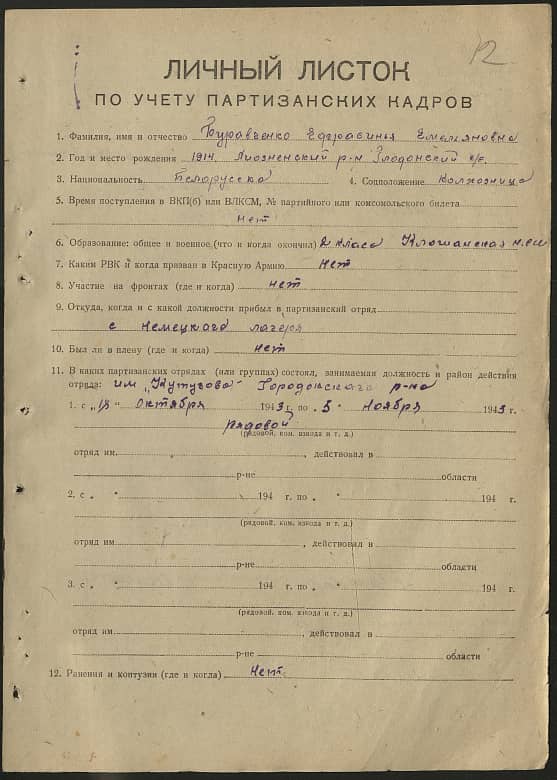 12
ЛИЧНЫЙ ЛИСТОК
ПО УЧЕТУ ПАРТИЗАНСКИХ КАДРОВ
1. Фамилия, имя и отчество Буравченко Ефрасинья Емельяновна
2. Год и место рождения 1914. Лиозненский р-н с/с.
3. Национальность Белорусска 4. Соцположение Колхозница
5. Время поступления в ВКП(б) или ВЛКСМ, № партийного или комсомольского билета
нет
6. Образование: общее и военное (что и когда окончил) класса
7. Каким РВК и когда призван в Красную Армию нет
8. Участие на фронтах (где и когда) нет
9. Откуда, когда и с какой должности прибыл в партизанский отряд
с немецкого лагеря
10. Был ли в плену (где и когда) нет
11. В каких партизанских отрядах (или группах) состоял, занимаемая должность и район действия
отряда: им "Кутузова" Городокского р-на
1. с „18" Октября 1943 г. по „5" ноября 1943 г.
рядовой
(рядовой, ком. взвода и т. д.)
отряд им. , действовал в
р-не области
2. с „ " 194 г. по „ " 194 г.
(рядовой, ком. взвода и т. д.)
отряд им , действовал в
р-не области
3. с „ " 194 г. по „ " 194 г.
(рядовой, ком. взвода и т. д.)
отряд им , действовал в
р-не области
12. Ранения и контузии (где и когда) Нет.